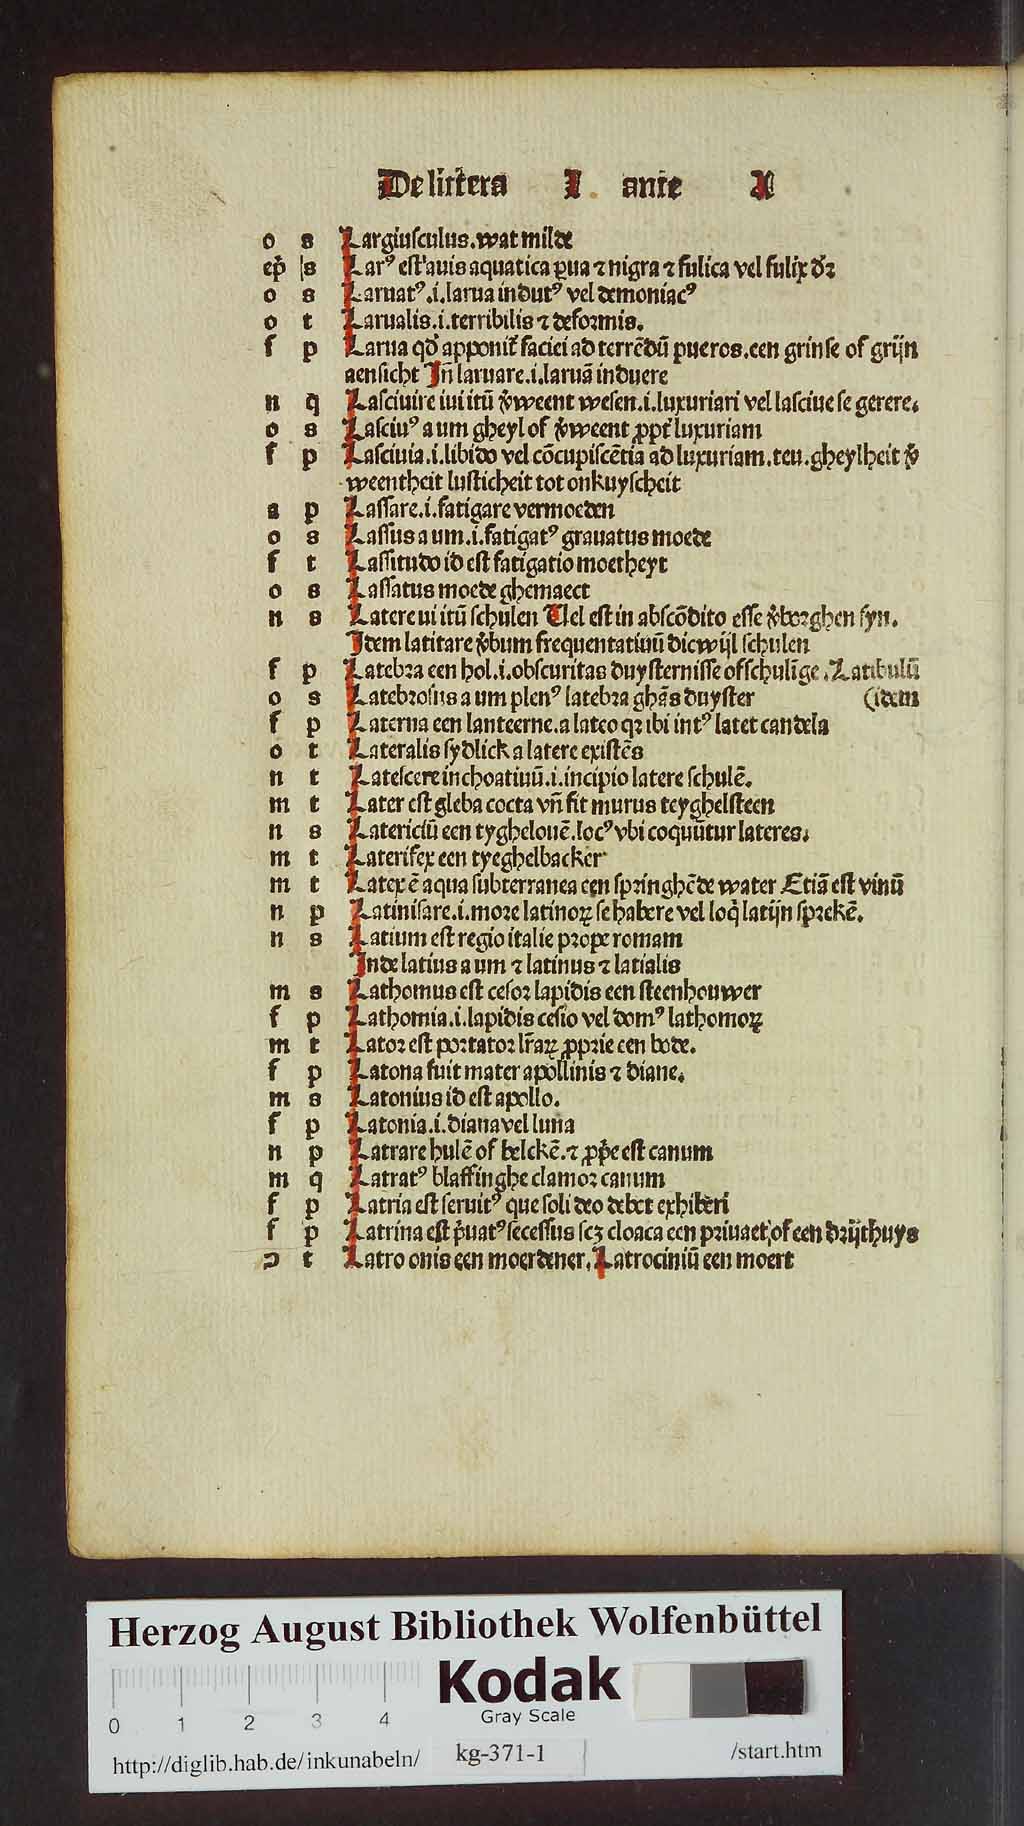 De littera L ante A
o s Largiusculus.wat milde
ep̄ s Larꝰ est auis aquatica ꝑua ⁊ nigra ⁊ fulica vel fulix dꝛ̄
o s Laruatꝰ.i.larua indutꝰ vel demoniacꝰ
o t Larualis.i.terribilis ⁊ deformis.
f p Larua qđ apponit᷑ faciei ad terrēdū pueros.een grinse of grijn
aensicht Jn̄ laruare.i.laruā induere
n q Lasciuire iui itū v̄weent wesen.i.luxuriari vel lasciue se gerere.
o s Lasciuꝰ a um gheyl of v̄weent ꝓpt̄ luxuriam
f p Lasciuia.i.libido vel cōcupiscētia ad luxuriam.teu.gheylheit v̄
weentheit lusticheit tot onkuyscheit
a p Lassare.i.fatigare vermoeden
o s Lassus a um.i.fatigatꝰ grauatus moede
f t Lassitudo id est fatigatio moetheyt
o s Lassatus moede ghemaect
n s Latere ui itū schulen Uel est in abscōdito esse v̄borghen syn.
Jdem latitare v̄bum frequentatiuū dicwijl schulen
f p Latebra een hol.i.obscuritas duysternisse ofschulīge.Latibulū
o s Latebrosus a um plenꝰ latebra ghās duyster (idem
f p Laterna een lanteerne.a lateo qꝛ ibi intꝰ latet candela
o t Lateralis sydlick a latere existēs
n t Latescere inchoatiuū.i.incipio latere schulē.
m t Later est gleba cocta vn̄ fit murus teyghelsteen
n s Latericiū een tyghelouē.locꝰ vbi coquūtur lateres.
m t Laterifex een tyeghelbacker
m t Latex ē aqua subterranea een springhēde water Etiā est vinū
n p Latinisare.i.more latinoꝝ se habere vel loq̄ latijn sprekē.
n s Latium est regio italie prope romam
Jnde latius a um ⁊ latinus ⁊ latialis
m s Lathomus est cesor lapidis een steenhouwer
f p Lathomia.i.lapidis cesio vel domꝰ lathomoꝝ
m t Lator est portator lr̄aꝝ ꝓprie een bode.
f p Latona fuit mater apollinis ⁊ diane.
m s Latonius id est apollo.
f p Latonia.i.diana vel luna
n p Latrare hulē of belckē.⁊ ꝓp̄e est canum
m q Latratꝰ blaffinghe clamor canum
f p Latria est seruitꝰ que soli deo debet exhiberi
f p Latrina est p̄uatꝰ secessus scꝫ cloaca een priuaet of een drijthuys
t Latro onis een moerdener.Latrociniū een moert
Herzog August Bibliothek Wolfenbüttel
Kodak
Gray Scale
0 1 2 3 4
http://diglib.hab.de/inkunabeln/ kg-371-1 /start.htm